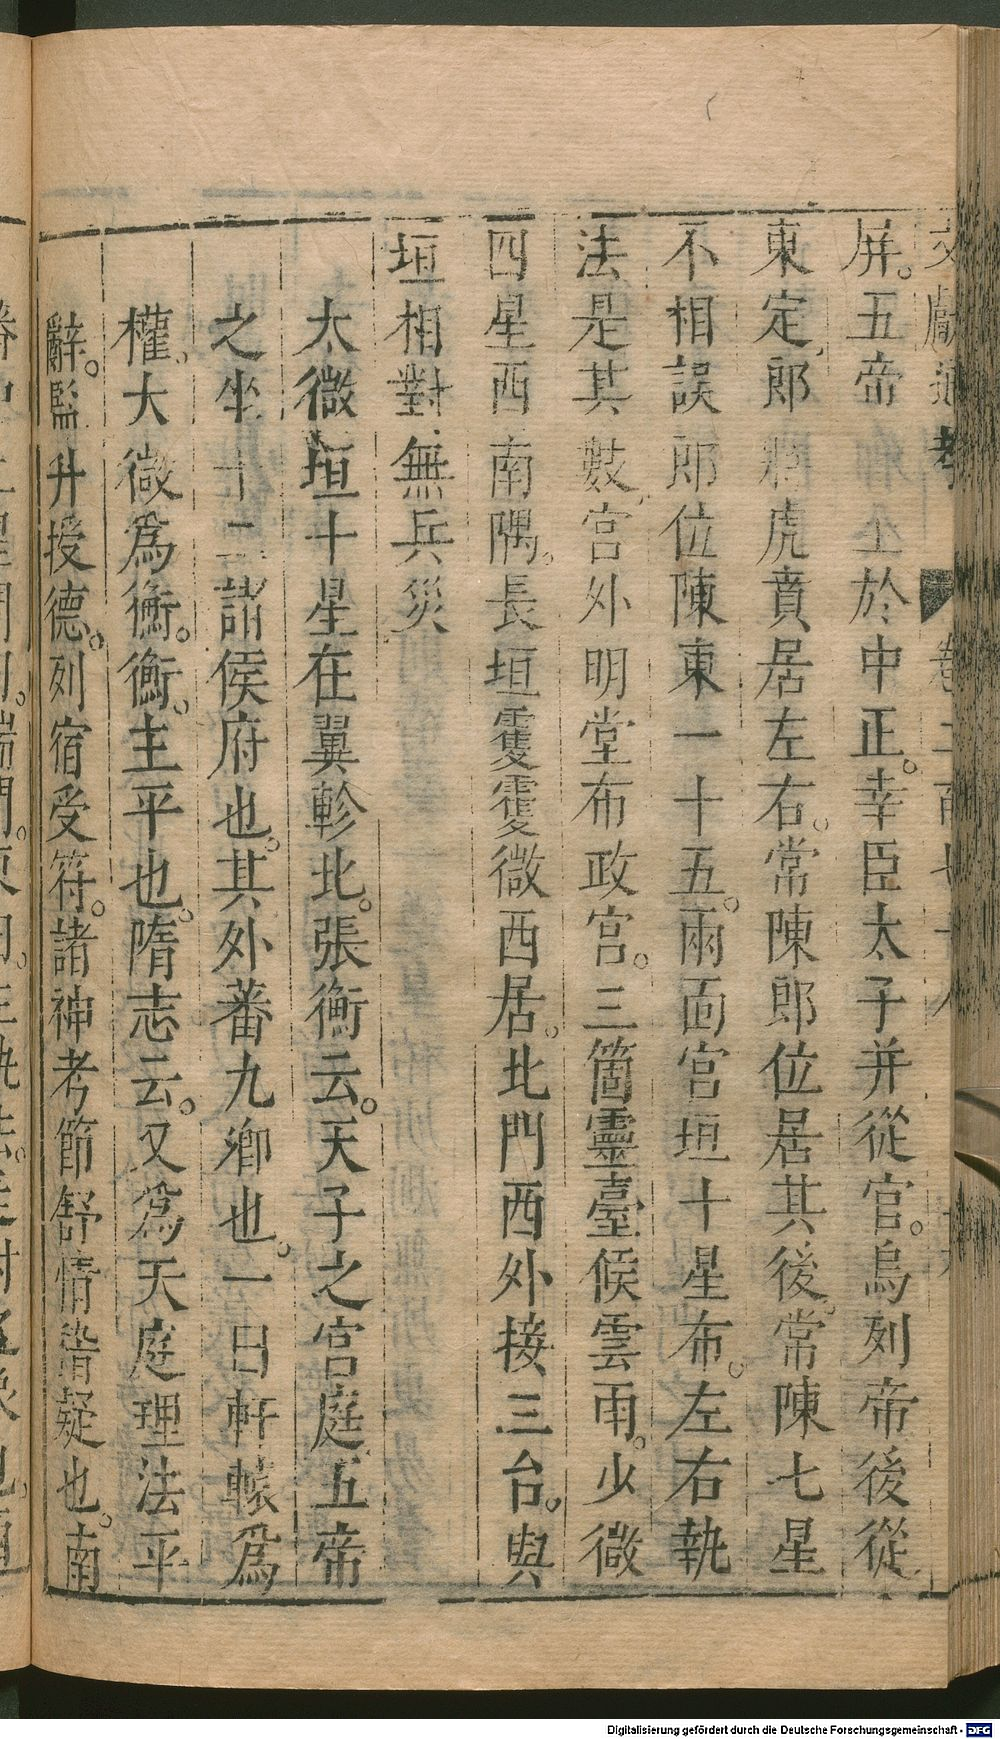 文獻通考 卷二百七十八
屏。五帝 坐於中正。幸臣太子并從官。烏列帝後從
東定、郎 將虎賁居左右。常陳郎位居其後、常陳七星
不相誤郎位陳東一十五。兩面宮垣十星布。左右執
法是其數、宮外明堂布政宮。三箇靈臺候雲雨。少微
四星西南隅。長垣雙雙微西居。北門西外接三台。與
垣相對無兵災
太微垣十星在翼軫北。張衡云。天子之宮庭五帝
之坐十二諸侯府也。其外蕃九卿也。一曰軒轅爲
權、大微爲衡。衡。主平也。隋志云。又爲天庭理法平
辭。監升授德。列宿受符。諸神考節舒情稽疑也。南
Digitalisierung gefördert durch die Deutsche Forschungsgemeinschaft - DFG